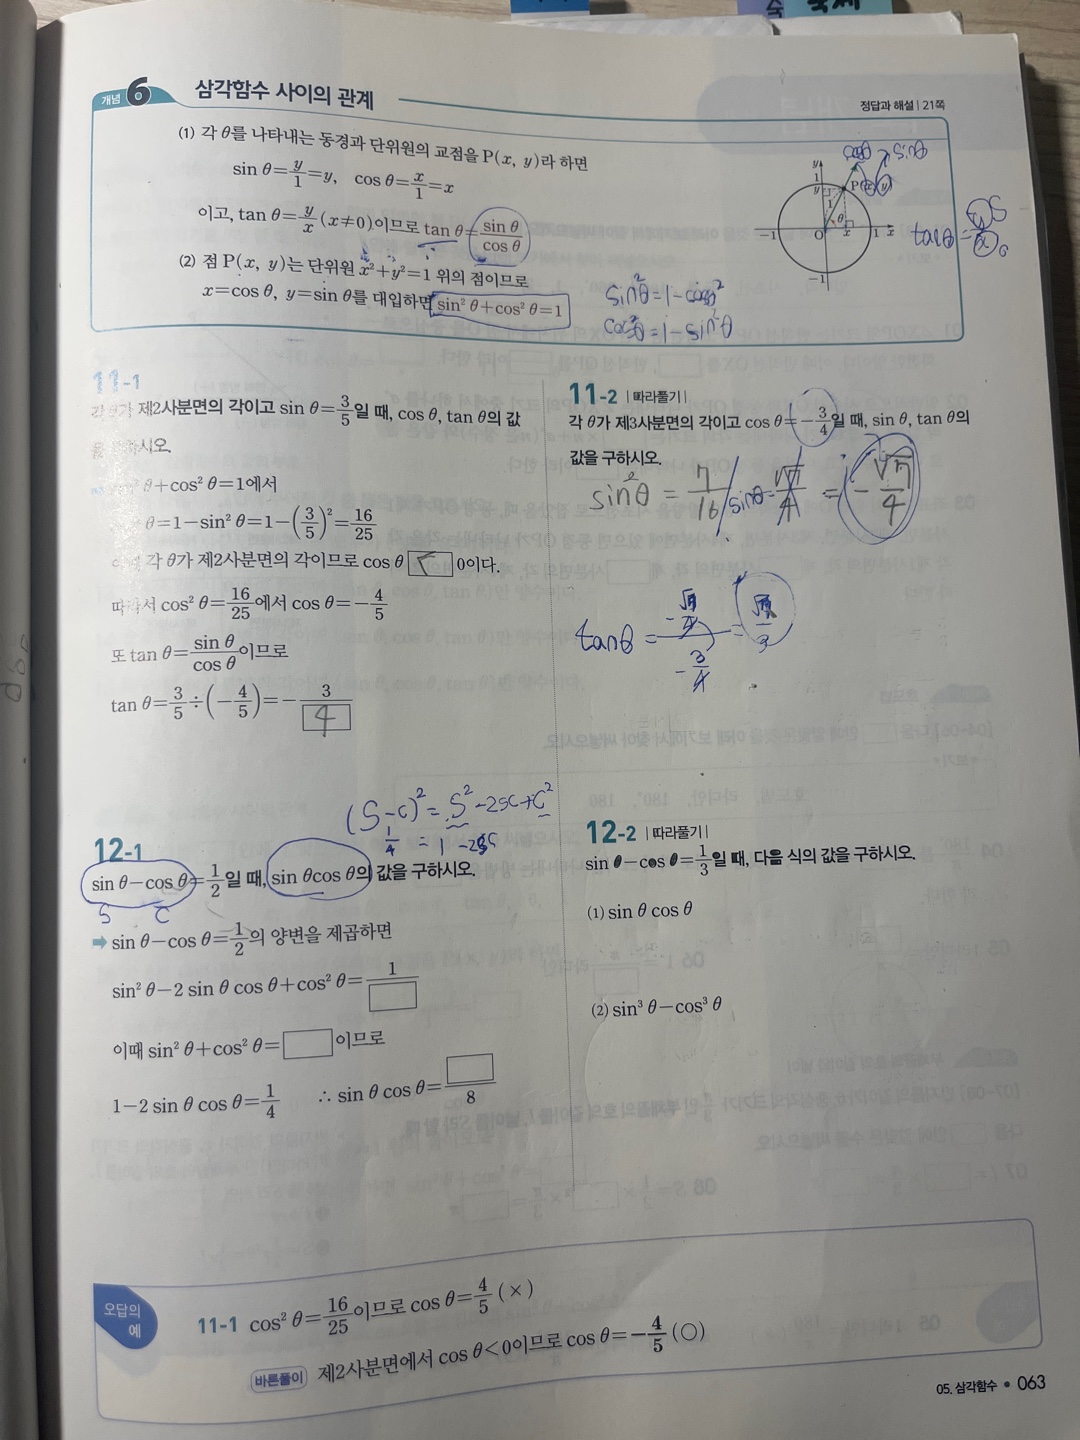 국제
개념 6 삼각함수 사이의 관계
정답과 해설 | 21쪽
(1) 각 θ를 나타내는 동경과 단위원의 교점을 P(x, y)라 하면
sin θ=y/1=y, cos θ=x/1=x
이고, tan θ=y/x(x≠0)이므로 tan θ=sin θ/cos θ
(2) 점 P(x, y)는 단위원 x²+y²=1 위의 점이므로
x=cos θ, y=sin θ를 대입하면 sin² θ+cos² θ=1
y
1
y
P(x, y)
sinθ
1
θ
-1
O
x
1
x
-1
tanθ = y/x
S
C
sin²θ=1-cosθ²
cos²θ=1-sin²θ
11-1
각 θ가 제2사분면의 각이고 sin θ=3/5일 때, cos θ, tan θ의 값
을 구하시오.
θ+cos² θ=1에서
θ=1-sin² θ=1-(3/5)²=16/25
이때 각 θ가 제2사분면의 각이므로 cos θ < 0이다.
따라서 cos² θ=16/25에서 cos θ=-4/5
또 tan θ=sin θ/cos θ이므로
tan θ=3/5÷(-4/5)=-3/4
11-2 | 따라풀기 |
각 θ가 제3사분면의 각이고 cos θ=-3/4일 때, sin θ, tan θ의
값을 구하시오.
sin²θ = 7/16 / sinθ=√7/4 = -√7/4
tanθ = -√7/4 / -3/4 = √7/3
(S-C)² = S²-2SC+C²
1/4 = 1-2SC
12-1
sin θ-cos θ=1/2일 때, sin θcos θ의 값을 구하시오.
S C
➡ sin θ-cos θ=1/2의 양변을 제곱하면
sin² θ-2 sin θ cos θ+cos² θ=1/□
이때 sin² θ+cos² θ=□이므로
1-2 sin θ cos θ=1/4 ∴ sin θ cos θ=□/8
12-2 | 따라풀기 |
sin θ-cos θ=1/3일 때, 다음 식의 값을 구하시오.
(1) sin θ cos θ
(2) sin³ θ-cos³ θ
오답의 예
11-1 cos² θ=16/25이므로 cos θ=4/5 (×)
바른풀이 제2사분면에서 cos θ<0이므로 cos θ=-4/5 (○)
05. 삼각함수 • 063